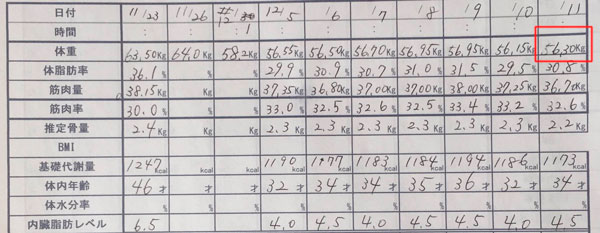 日付 11/23 11/26 12/5 1/6 1/7 1/8 1/9 1/10 1/11
時間 : : : : : : : : : :
体重 63.50Kg 64.0Kg 58.2Kg 56.55Kg 56.50Kg 56.70Kg 56.95Kg 56.95Kg 56.15Kg 56.30Kg
体脂肪率 36.1% % % 29.9% 30.9% 30.7% 31.0% 31.5% 29.5% 30.8%
筋肉量 38.15Kg Kg Kg 37.35Kg 36.80Kg 37.00Kg 37.00Kg 38.00Kg 37.25Kg 36.70Kg
筋肉率 30.0% % % 33.0% 32.5% 32.6% 32.5% 33.4% 33.2% 32.6%
推定骨量 2.4Kg Kg Kg 2.3Kg 2.3Kg 2.3Kg 2.3Kg 2.3Kg 2.3Kg 2.2Kg
BMI
基礎代謝量 1247kcal kcal kcal 1190kcal 1177kcal 1183kcal 1184kcal 1194kcal 1186kcal 1173kcal
体内年齢 46才 才 才 32才 34才 34才 35才 36才 32才 34才
体水分率 % % % % % % % % % %
内臓脂肪レベル 6.5 4.0 4.5 4.5 4.5 4.5 4.0 4.5